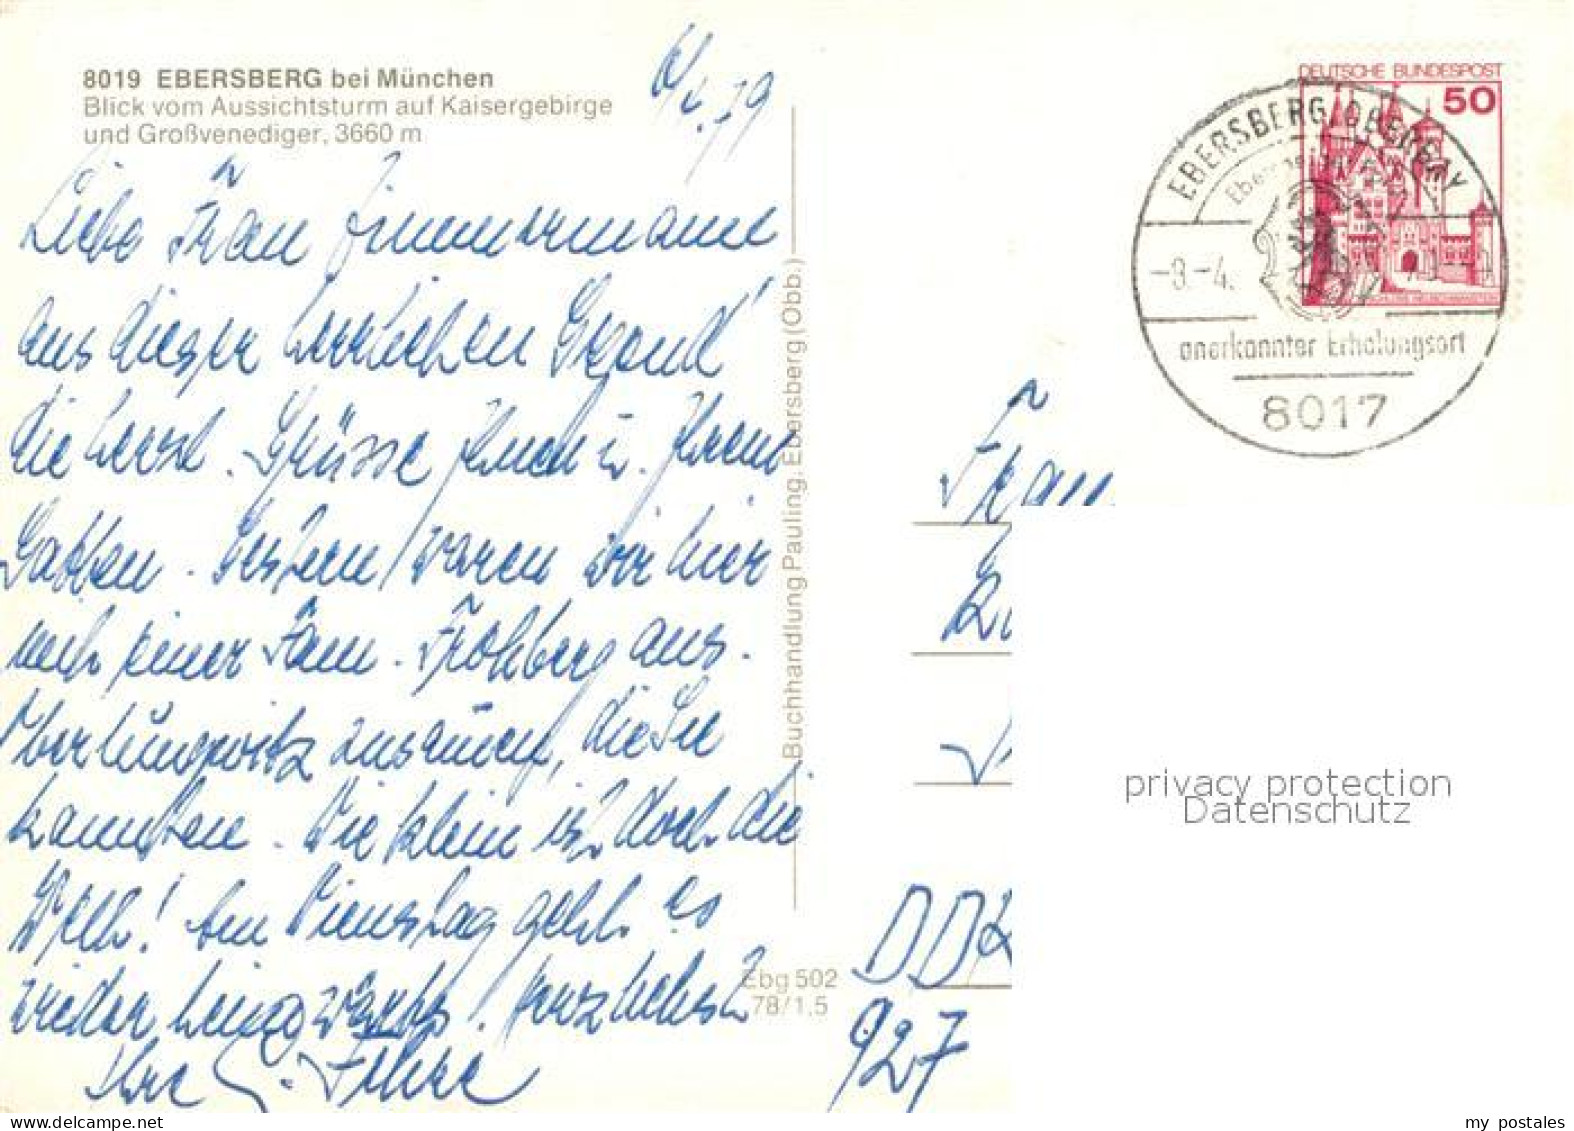 8019 EBERSBERG bei München
Blick vom Aussichtsturm auf Kaisergebirge
und Großvenediger, 3660 m
Liebe Frau Zimmermann
Aus dieser herrlichen Gegend
die herzl. Grüsse Ihnen u. Ihrem
Gatten. Gestern waren wir hier
mit einer Fam. Frohberg aus
Oberlungwitz zusammen, die Sie
kannten. Wie klein ist doch die
Welt! Am Dienstag geht es
wieder heimwärts. Herzlichst
Ihre
Buchhandlung Pauling, Ebersberg (Obb.)
Ebg 502
78/1,5
DEUTSCHE BUNDESPOST
50
EBERSBERG, OBERBAY
-9.-4.
anerkannter Erholungsort
8017
Frau
DDR
927
privacy protection
Datenschutz
my postales